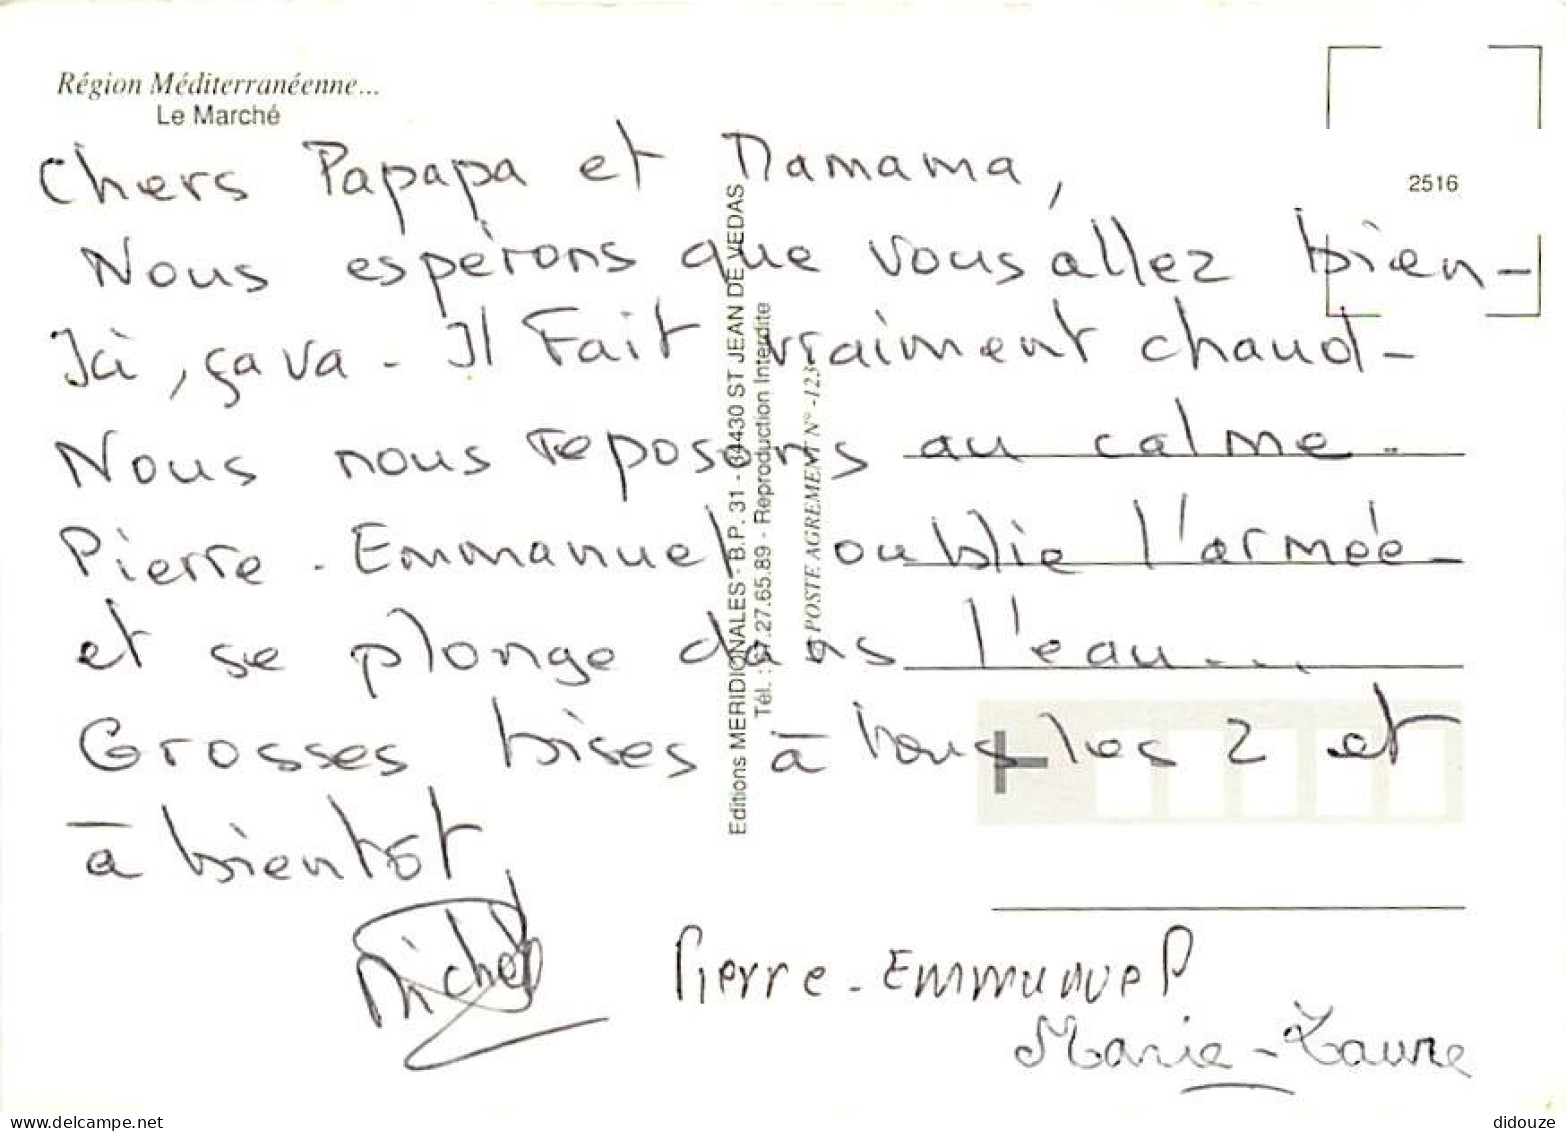 Région Méditerranéenne...
Le Marché
2516
Chers Papapa et Mamama,
Nous espérons que vous allez bien -
Ici, ça va - Il Fait vraiment chaud -
Nous nous reposons au calme -
Pierre - Emmanuel oublie l'armée -
et se plonge dans l'eau....
Grosses bises à tous les 2 et
à bientôt
Michel
Pierre - Emmanuel
Marie - Laure
Editions MERIDIONALES - B.P. 31 - 34430 ST JEAN DE VEDAS
Tél. : 67.27.65.89 - Reproduction Interdite
POSTE AGREMENT N° -123-
www.delcampe.net
didouze